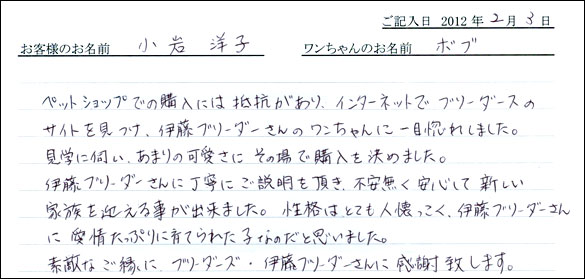 ご記入日 2012年 2月 3日
お客様のお名前 小岩 洋子 ワンちゃんのお名前 ボブ
ペットショップでの購入には抵抗があり、インターネットでブリーダースの
サイトを見つけ、伊藤ブリーダーさんのワンちゃんに一目惚れしました。
見学に伺い、あまりの可愛さにその場で購入を決めました。
伊藤ブリーダーさんに丁寧にご説明を頂き、不安無く安心して新しい
家族を迎える事が出来ました。性格はとても人懐っこく、伊藤ブリーダーさん
に愛情たっぷりに育てられた子なのだと思いました。
素敵なご縁に、ブリーダーズ・伊藤ブリーダーさんに感謝致します。